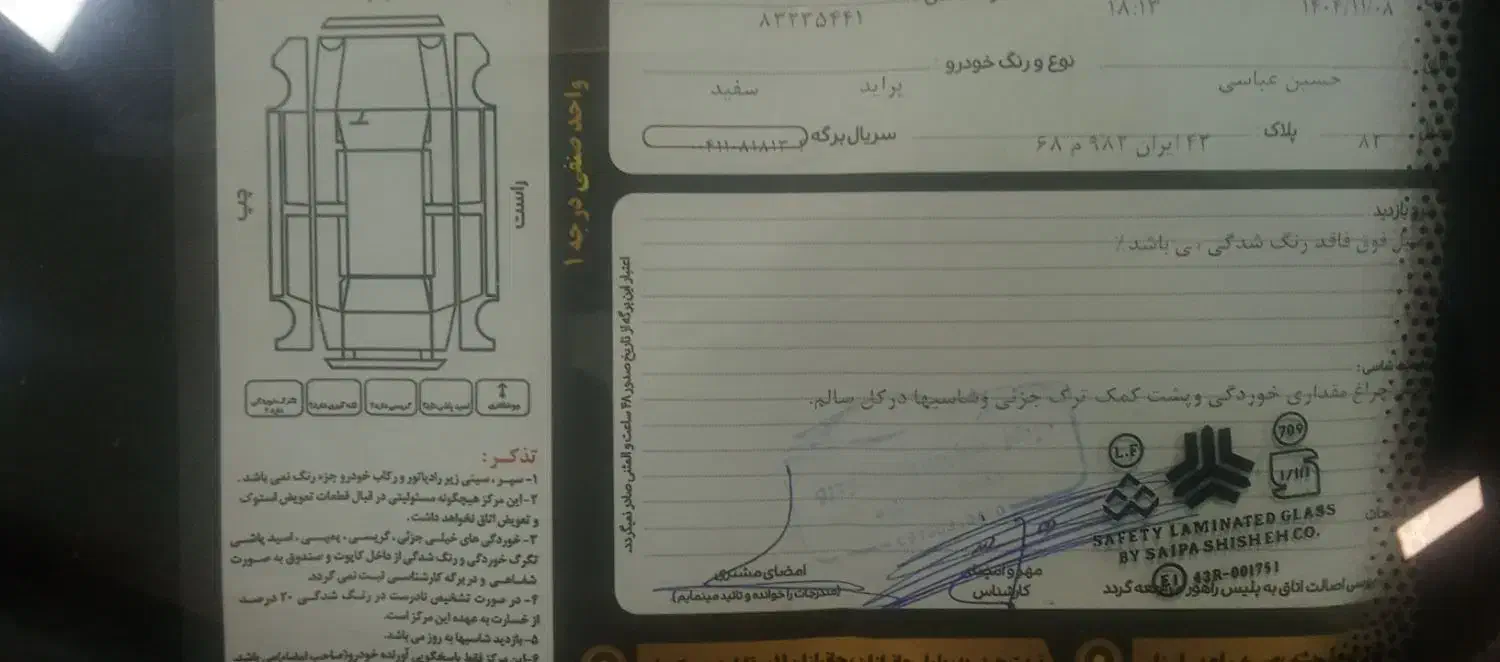 ۱۴۰۴/۱۱/۰۸
۱۸:۱۳
۸۳۲۳۵۴۴۱
نوع و رنگ خودرو
حسین عباسی
پراید
سفید
۸۲
پلاک
۴۲ ایران ۹۸۲ م ۶۸
سریال برگه
۴۱۱۰۸۱۸۱۳
بازدید
فوق فاقد رنگ شدگی ، ی باشد٪
شاسی:
چراغ مقداری خوردگی و پشت کمک ترک جزئی و شاسیها در کل سالم.
L.F
709
1/111
SAFETY LAMINATED GLASS
BY SAIPA SHISHEH CO.
E1 43R-001751
اصالت اتاق به پلیس راهور مراجعه گردد
مهر و امضای
کارشناس
امضای مشتری
(مندرجات را خوانده و تائید مینمایم).
اعتبار این برگه از تاریخ صدور ۴۸ ساعت و المثنی صادر نمیگردد.
واحد صنفی درجه ۱
راست
چپ
تذکر:
۱- سپر، سینی زیر رادیاتور و رکاب خودرو جزء رنگ نمی باشد.
۲- این مرکز هیچگونه مسئولیتی در قبال قطعات تعویض استوک
و تعویض اتاق نخواهد داشت.
۳- خوردگی های خیلی جزئی، گریسی، پمپی، اسید پاشی
تگرگ خوردگی و رنگ شدگی از داخل کاپوت و صندوق به صورت
شفاهی و در برگه کارشناسی ثبت نمی گردد.
۴- در صورت تشخیص نادرست در رنگ شدگی ۲۰ درصد
از خسارت به عهده این مرکز است.
۵- بازدید شاسیها به روز می باشد.
۶- این مرکز فقط پاسخگویی آورنده خودرو (صاحب امضاء) می باشد.